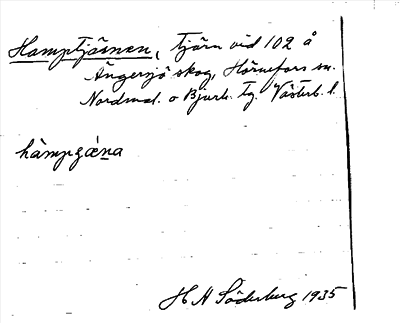 Hamptjärnen, tjärn vid 102 å
Ängersjö skog, Hörnefors sn.
Nordmal. o Bjurh. tg. Västerb. l.
hàmpǥǽna
H N Söderberg 1935